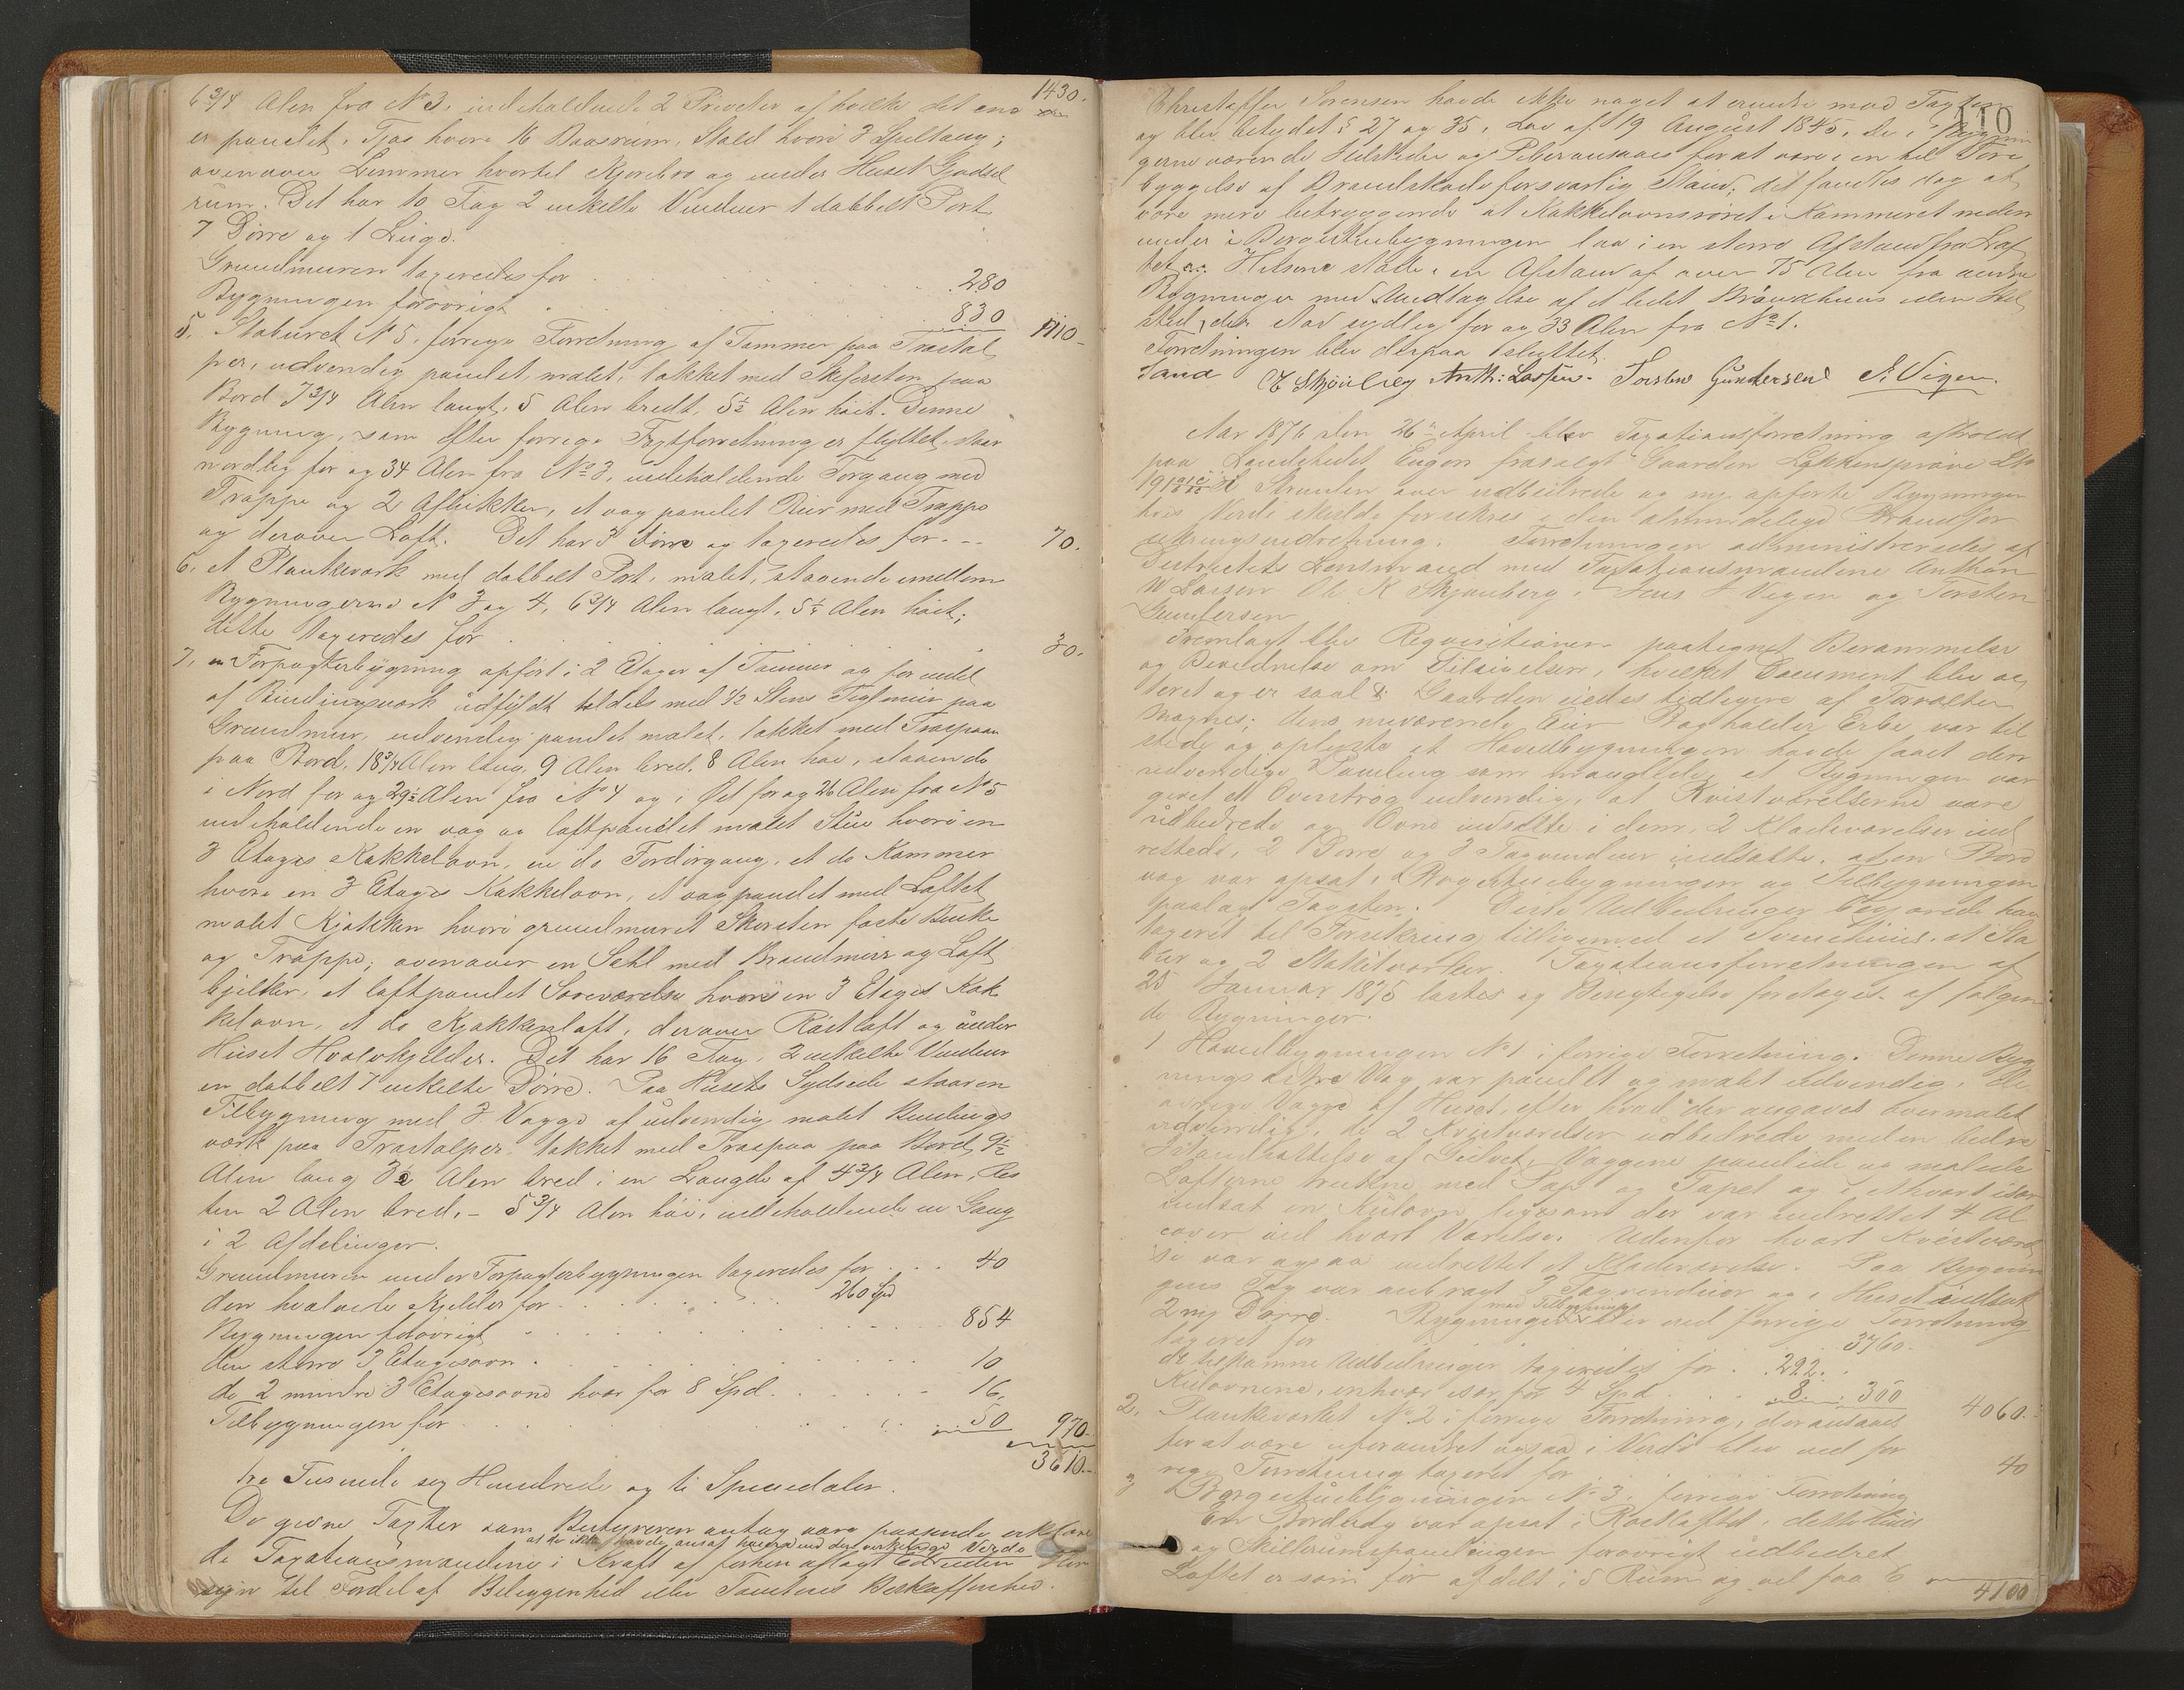 6 3/4 Alen fra No 3, indeholdende 2 Priveter af hvilke det ene 1430.
er panelet, Fjøs hvori 16 Baasrum, Stald hvori 3 Spiltaug;
ovenover Lemmer hvortil Kjørebro og under Huset Gjødsel
rum. Det har 10 Fag 2 enkelte Vinduer 1 dobbelt Port
7 Dørre og 1 Luge.
Grundmuren taxeredes for 280
Bygningen forøvrigt 830 1110
5. Staburet No 5, forrige Forretning af Tømmer paa Træstol
per, udvendig panelet, malet, takket med Skifersten paa
Bord 7 3/4 Alen langt, 5 Alen bredt, 5 1/2 Alen høit. Denne
Bygning, som efter forrige Taxtforretning er flyttet, staar
nordlig for og 34 Alen fra No 3, indeholdende Forgang med
Trappe og 2 Aflukker, et vægpanelet Rum med Trappe
og derover Loft. Det har 3 Dørre og taxeredes for 70.
6. et Plankeværk med dobbelt Port, malet, staaende imellem
Bygningerne No 3 og 4, 6 3/4 Alen langt, 5 1/4 Alen høit;
dette taxeredes for 30.
7. en Forpagterbygning opført i 2 Etager af Tømmer og for endel
af Bindingsværk udfyldt tildels med 1/2 Stens Teglmuur paa
Grundmur, udvendig panelet malet, takket med Træspaan
paa Bord, 18 3/4 Alen lang, 9 Alen bred, 8 Alen høi, staaende
i Nord for og 29 1/2 Alen fra No 4 og i Øst for og 26 Alen fra No 5
indeholdende en væg og loftpanelet malet Stue hvori en
3 Etages Kakkelovn, en do Fordørgang, et do Kammer
hvori en 3 Etages Kakkelovn, et vægpanelet med Loftet
malet Kjøkken hvori grundmuret Skorsten faste Bænke
og Trappe; ovenover en Sahl med Brandmur og Loft
bjelker, et loftpanelet Soveværelse hvori en 3 Etages Kak
kelovn, et do Kjøkkenloft, derover Røstloft og under
Huset Hvælvkjelder. Det har 16 Fag, 2 enkelte Vinduer
en dobbelt 7 enkelte Dørre. Paa Husets Sydside staar en
Tilbygning med 3 Vægge af udvendig malet Bindings
værk paa Træstolper, takket med Træspaan paa Bord, 9 1/2
Alen lang 3 1/2 Alen bred i en Længde af 4 3/4 Alen, Res
ten 2 Alen bred, – 5 3/4 Alen høi, indeholdende en Gang
i 2 Afdelinger.
Grundmuren under Forpagterbygningen taxeredes for 40
den hvælvede Kjelder for 260 Spd
Bygningen forøvrigt 854
den større 3 Etagesovn 10
de 2 mindre 3 Etagesovne hver for 8 Spd 16,
Tilbygningen for 50 970
3610
tre Tusinde sex Hundrede og ti Speciedaler.
De givne Taxter som Bestyreren antog være passende erklære
at de ikke havde ansat høiere end den virkelige Værdi
de Taxationsmændene i Kraft af forhen aflagt Ed uden Hen
syn til Fordel af Beliggenhed eller Tomtens Beskaffenhed.
110
Christoffer Sørensen havde ikke noget at erindre mod Taxten
og blev betydet § 27 og 35, Lov af 19 August 1845. De i Bygnin
gerne værende Ildsteder og Piber ansaaes for at være i en til Fore
byggelse af Brandskade forsvarlig Stand; det fandtes dog at
være mere betryggende at Kakkelovnsrøret i Kammeret neden
under i Borgestuebygningen laa i en større Afstand fra Lof
tet og Husene stode i en Afstand af over 75 Alen fra andre
Bygninger med Undtagelse af et lidet Brændehuus uden Ild
sted, der stod sydlig for og 33 Alen fra No 1.
Forretningen blev derpaa sluttet.
Sand O K Skjønberg Anth: Larsen Torsten Gundersen J. Vigen.
Aar 1876 den 26de April blev Taxationsforretning afholdt
paa Landstedet Engen frasolgt Gaarden Løkkensprove Lb
191 Stranden over udbedrede og ny opførte Bygninger
hvis Værdi skulde forsikres i den almindelige Brandfor
sikringsindretning. Forretningen administreredes af
Distriktets Lensmand med Taxationsmændene Anthon
W Larsen Ole K Skjønberg, Jens J Vigen og Torsten
Gundersen
Fremlagt blev Requisitionen paategnet Berammelse
og Bevidnelse om Tilsigelsen, hvilket Document blev oc
teret og er saal. &. Gaarden eiedes tidligere af Forvalter
Magnes; dens nuværende Eier Bogholder Erbe var til
stede og oplyste at Hovedbygningen havde faaet den
udvendige Paneling som manglede, at Bygningen var
givet et Overstrøg udvendig, at Kvistværelserne vare
udbedrede og Ovne indsatte i dem, 2 Klædeværelser ind
rettede, 2 Dørre og 3 Tagvinduer indsatte, at en Bord
væg var opsat i Borgestuebygningen og Tilbygningen
paalagt Tagsten. Disse Udbedringer begjærede han
taxeret til Forsikring tilligemed et Svinehuus, et Sta
bur og 2 Stakitværker. Taxationsforretningen af
25 Januar 1875 lastes og Besigtigelse foretages af følgen
de Bygninger.
1 Hovedbygningen No 1 i forrige Forretning. Denne Byg
nings østre Væg var panelt og malet udvendig, de
øvrige Vægge af Huset, efter hvad der angaves overmalet
udvendig, de 2 Kvistværelser udbedrede med en bedre
Istandsættelse af Gulvet, Væggene panelede og malede
Lofterne trukne med Pap og Tapet og i ethvert især
indsat en Kulovn ligesom der var indrettet 4 Al
cover ved hvert Værelse. Udenfor hvert Kvistværel
se var ogsaa indrettet et Klædeværelse. Paa Bygnin
gens Tag var anbragt 3 Tagvinduer og i Huset indsat
2 ny Dørre. Bygningen med Tilbygning er ved forrige Forretning
taxeret for 3760.
de bekomne Udbedringer taxeredes for 292.
Kulovnene, enhver især for 4 Spd 8. 300 4060.
2. Plankeværket No 2 i forrige Forretning, der ansaaes
for at være uforandret ogsaa i Værdi blev ved for
rige Forretning taxeret for 40
3 Borgestuebygningen No 3 i forrige Forretning
En Bordvæg var opsat i Røstloftet, dettes Gulv
og Skillerumspanelingen forøvrigt udbedret
Loftet er som før afdelt i 5 Rum og vel faa 6
4100